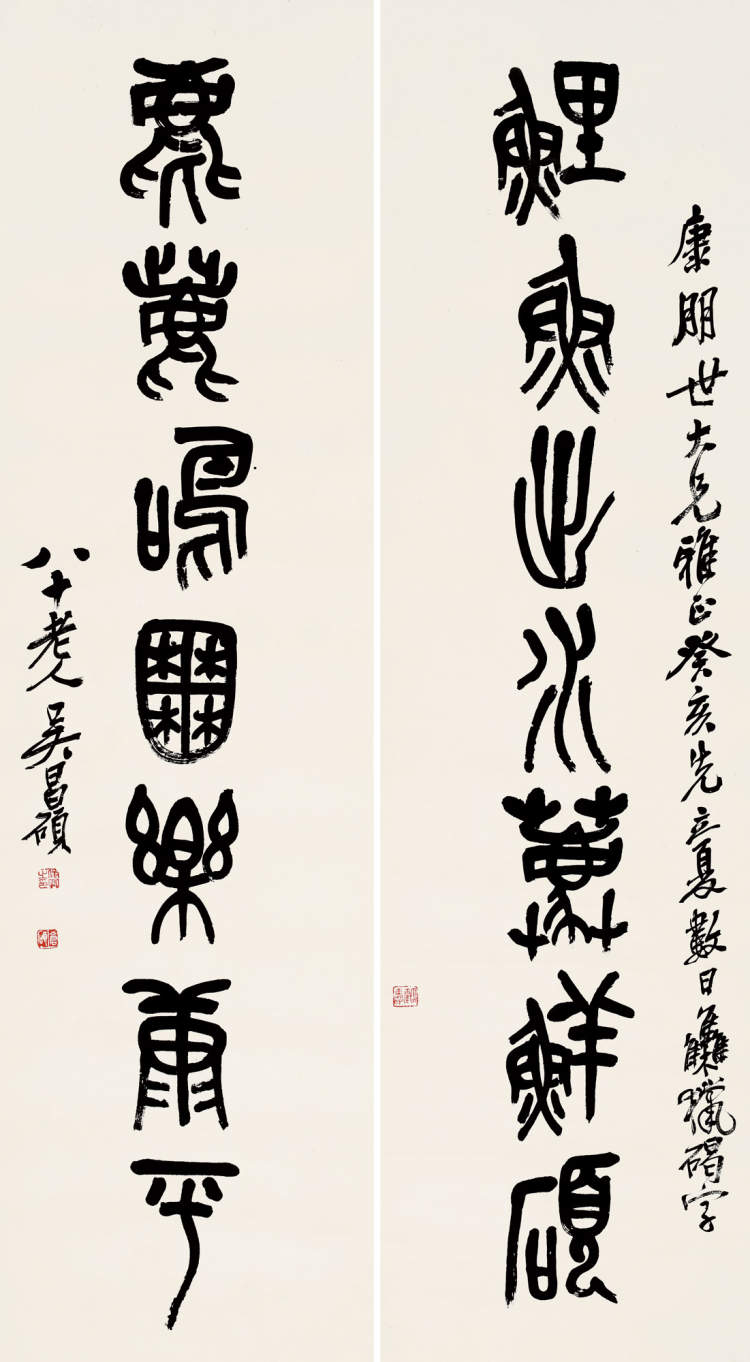 康朋世大兄雅正癸亥先立夏數日雧獵碣字
鯉魚出水鮮碩
麀鹿鳴囿樂康平
八十老人吳昌碩